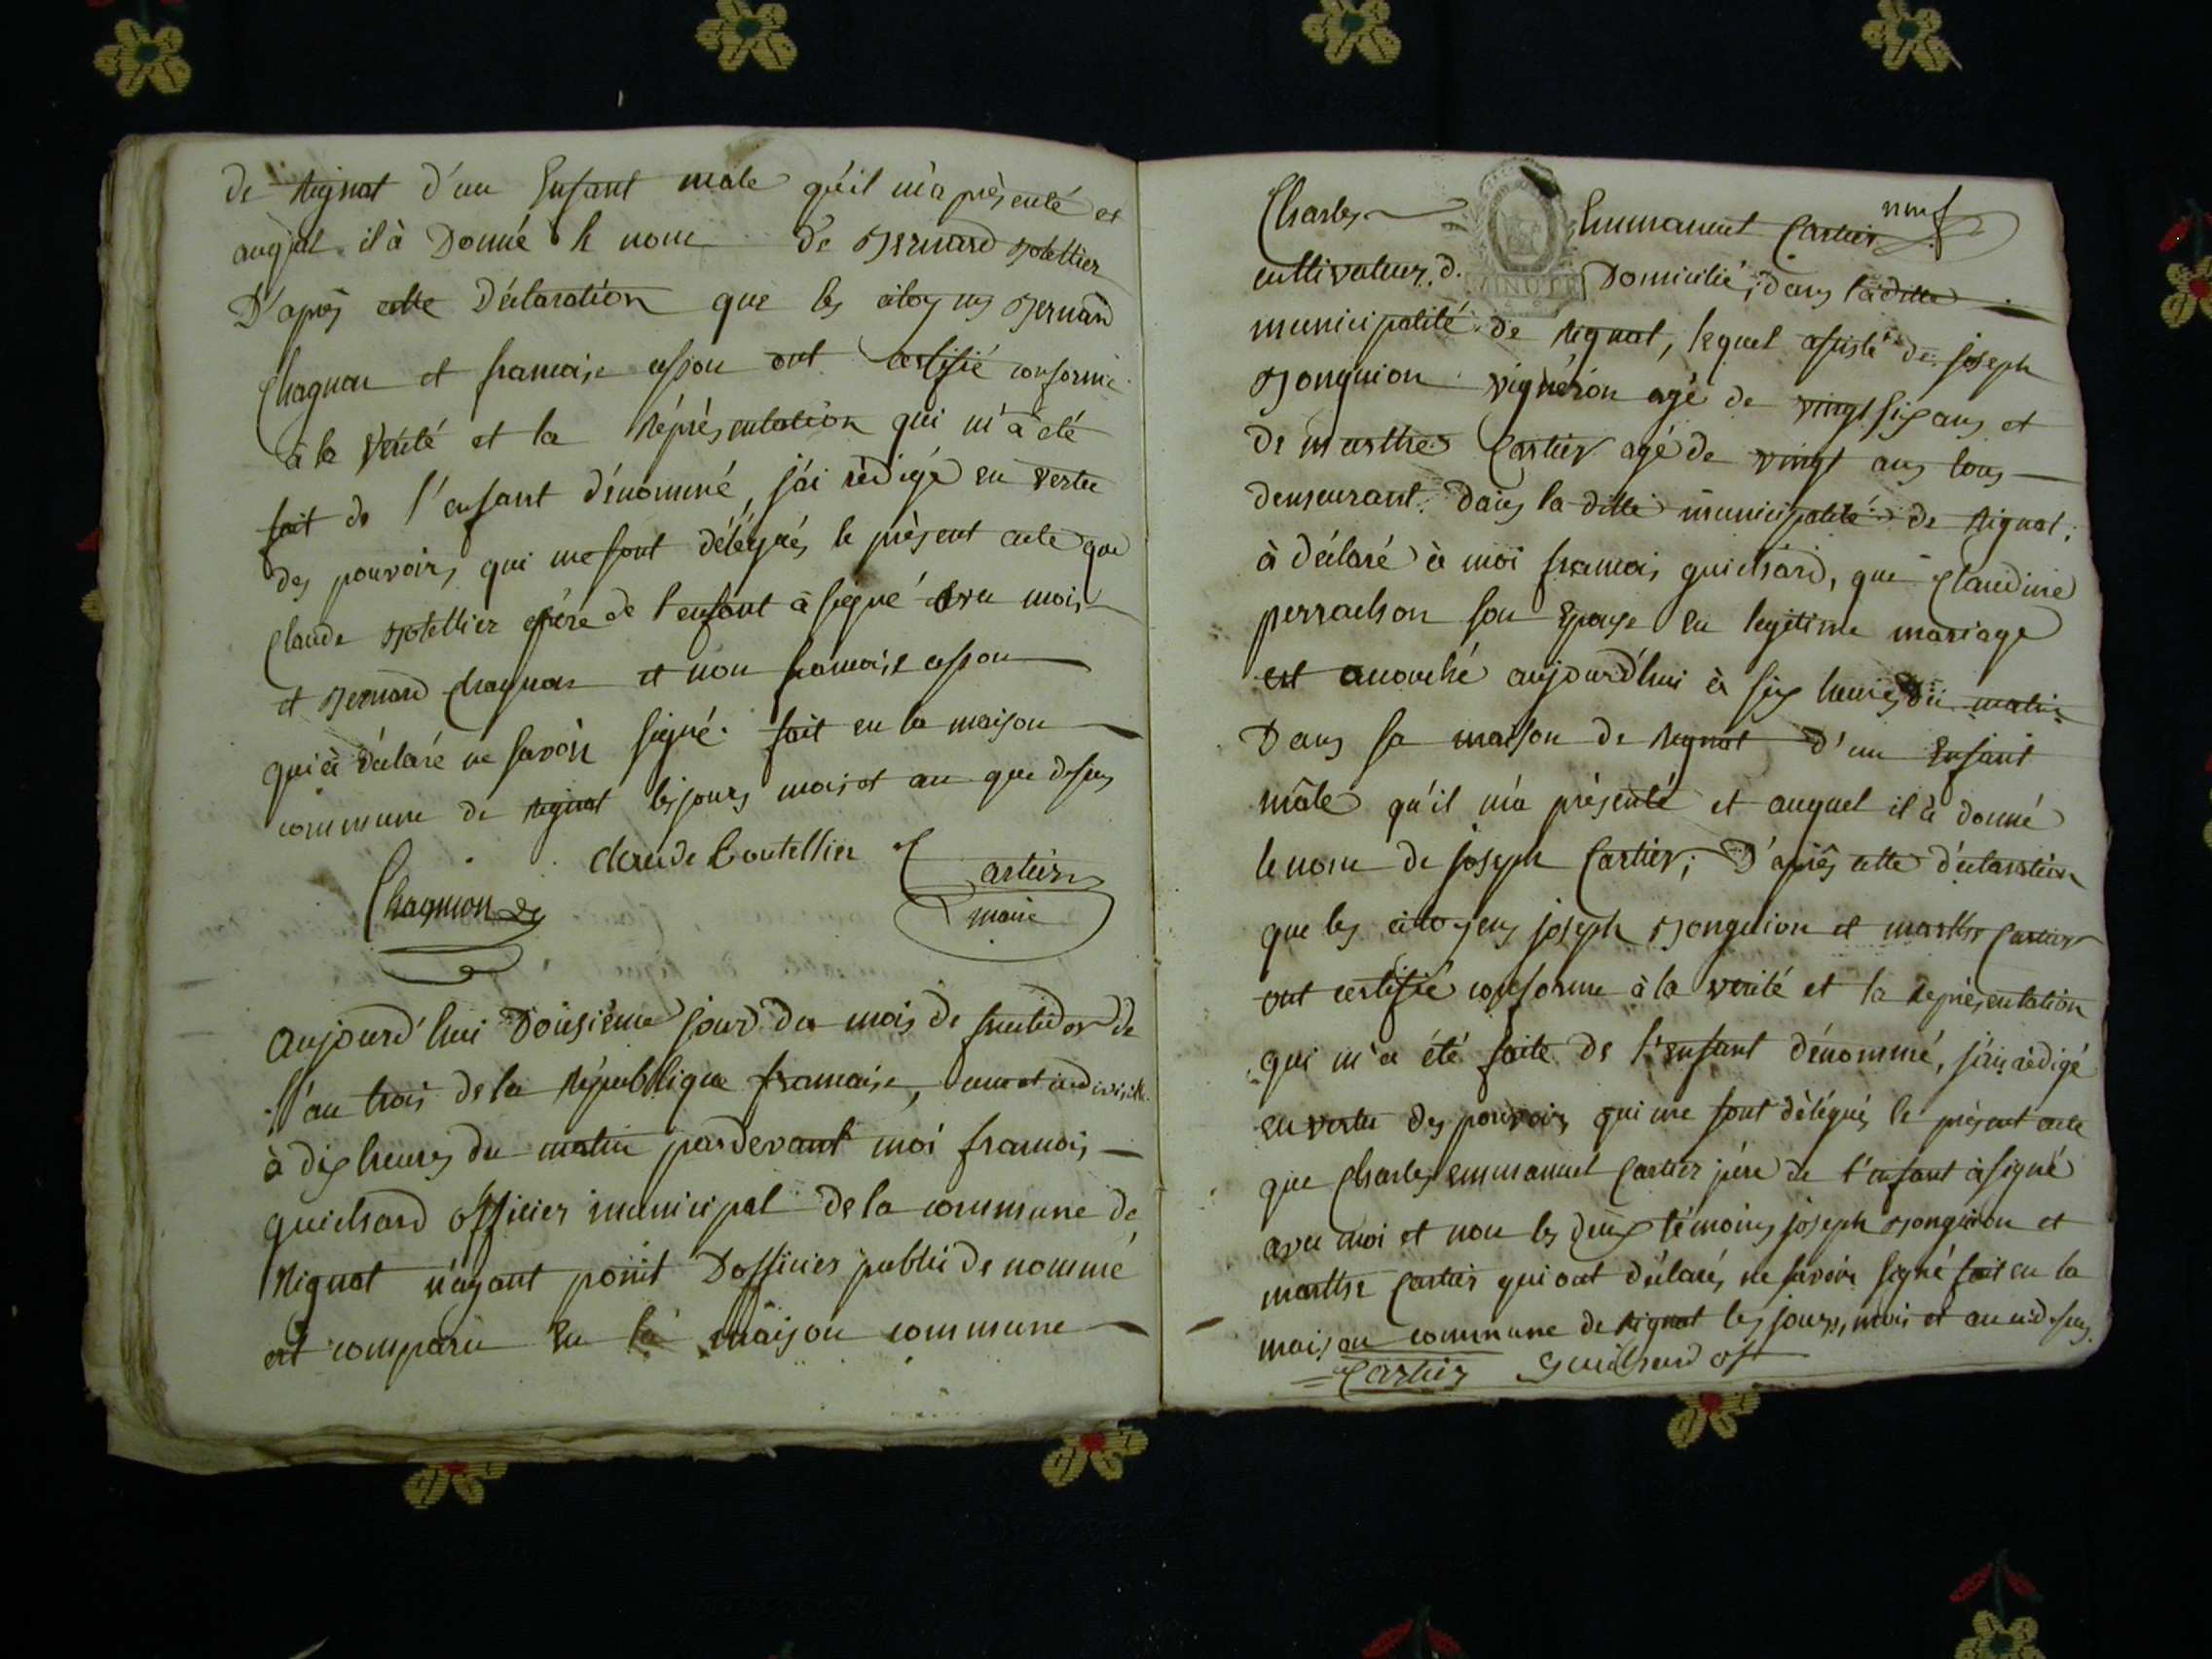 de Rignat d'un Enfant male qu'il m'a présenté et
auquel il à Donné le nom de Bernard Botellier
D'après cette Déclaration que les citoyens Bernard
Chagnon et francoise ont certifié conforme
à la vérité et la Réprésentation qui m'a été
fait de l'enfant dénommé, j'ai rédigé en vertu
des pouvoirs qui me sont délégués le présent acte que
Claude Botellier père de l'enfant à signé avec moi
et Bernard Chagnon et non francoise
qui à déclaré ne savoir signé. fait en la maison
commune de Rignat les jours mois et an que dessus
claude Boutellier Cartier
Chagnion maire
Aujourd'hui Dousieme jour du mois de fructidor de
l'an trois de la République francaise, une et indivisible
à dix heures du matin pardevant moi francois
guichard officier municipal de la commune de
Rignat n'ayant point D'officier public de nommé
est comparu en la maison commune
neuf
Charles Emmanuel Cartier
cultivateur, d. Domicilié, dans la ditte
MINUTE
municipalité de Rignat, lequel assisté de joseph
Bonguion vignéron agé de vingt six ans et
de marthe Cartier agé de vingt ans tous
demeurant dans la ditte municipalité de Rignat;
à déclaré à moi francois guichard, que Claudine
perrachon son Epouse en legitime mariage
est acouché aujourd'hui à six heures du matin
Dans sa maison de Rignat d'un Enfant
mâle qu'il m'a présenté et auquel il à donné
le nom de joseph Cartier; D'après cette déclaration
que les citoyens joseph Bonguion et marthe Cartier
ont certifié conforme à la vérité et la Représentation
qui m'a été faite de l'enfant dénommé, j'ai rédigé
en vertu des pouvoirs qui me sont délégués le présent acte
que Charles emmanuel Cartier père de l'enfant à signé
avec moi et non les deux témoins joseph Bonguion et
marthe Cartier qui ont déclaré, ne savoir signé fait en la
maison commune de Rignat les jours, mois et an cidessus.
Cartier Guichard off